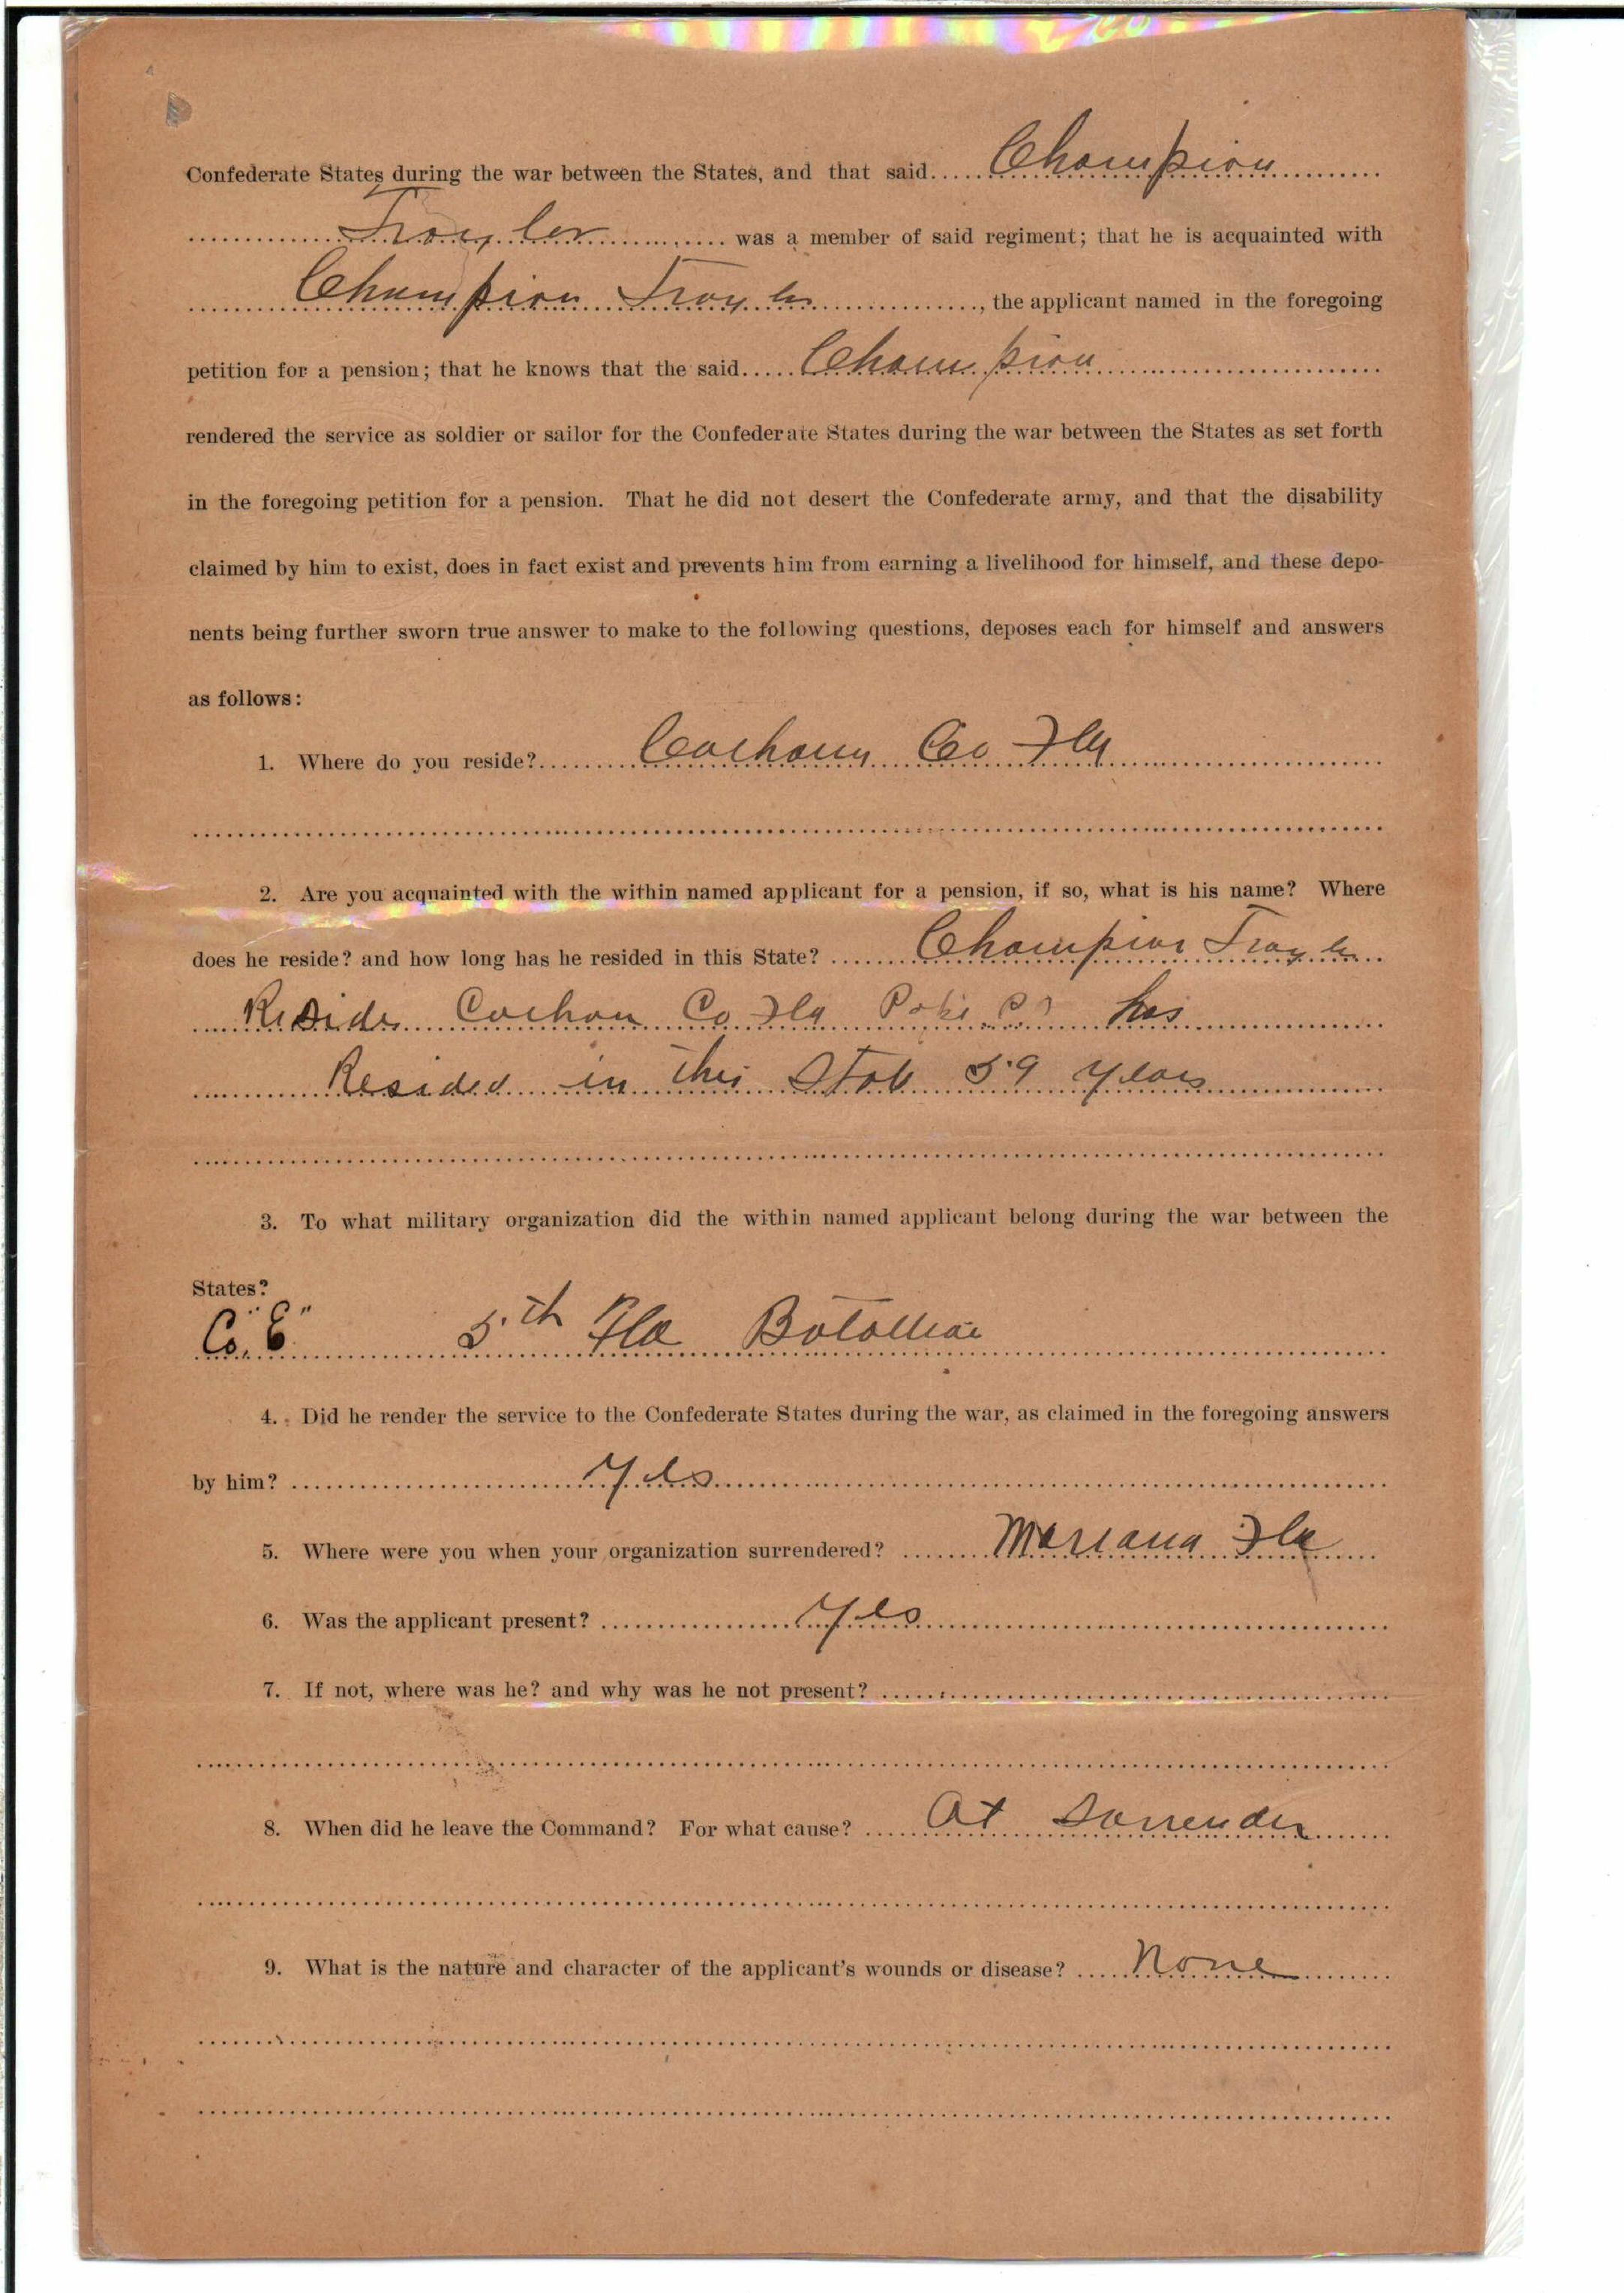 Confederate States during the war between the States, and that said Champion
Traylor was a member of said regiment; that he is acquainted with
Champion Trayler, the applicant named in the foregoing
petition for a pension; that he knows that the said Champion
rendered the service as soldier or sailor for the Confederate States during the war between the States as set forth
in the foregoing petition for a pension. That he did not desert the Confederate army, and that the disability
claimed by him to exist, does in fact exist and prevents him from earning a livelihood for himself, and these depo-
nents being further sworn true answer to make to the following questions, deposes each for himself and answers
as follows:
1. Where do you reside? Calhoun Co Fla
2. Are you acquainted with the within named applicant for a pension, if so, what is his name? Where
does he reside? and how long has he resided in this State? Champion Trayler
Resides Calhoun Co Fla has
Resided in this State 59 years
3. To what military organization did the within named applicant belong during the war between the
States?
Co. "E" 5th Fla Batallion
4. Did he render the service to the Confederate States during the war, as claimed in the foregoing answers
by him? Yes
5. Where were you when your organization surrendered? Mariana Fla
6. Was the applicant present? Yes
7. If not, where was he? and why was he not present?
8. When did he leave the Command? For what cause? At Surrender
9. What is the nature and character of the applicant's wounds or disease? None